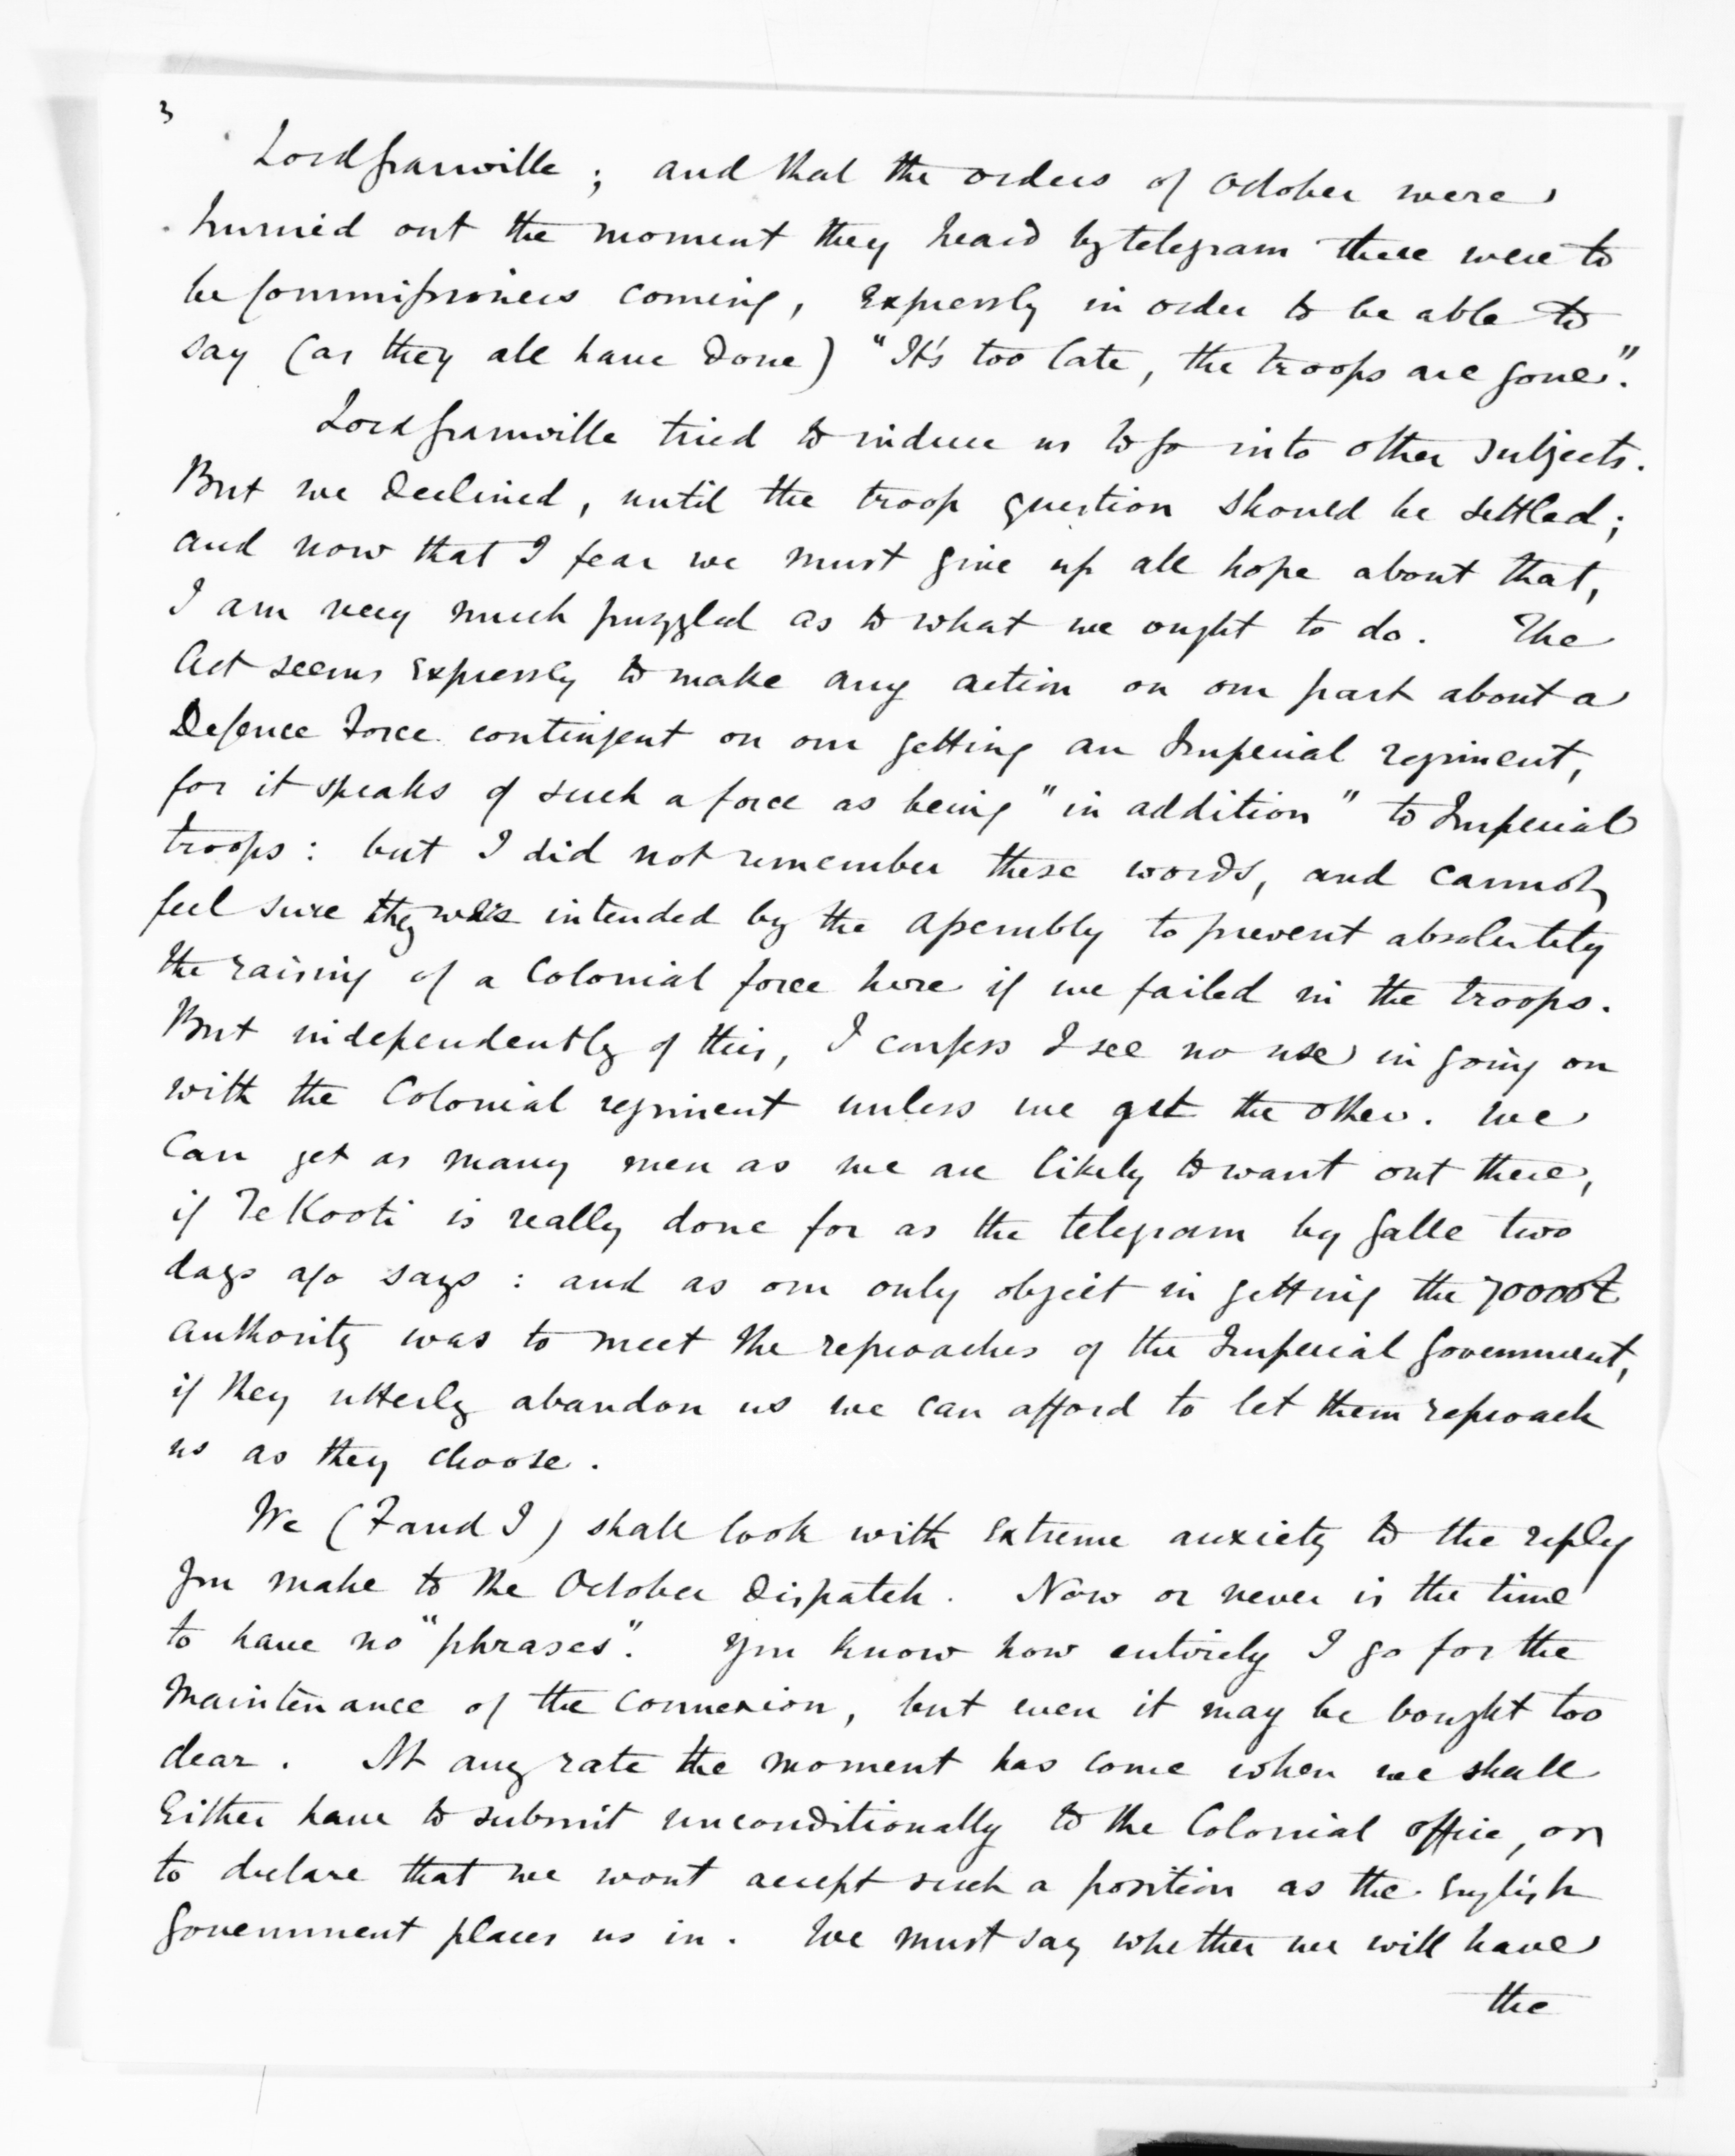 3
Lord Granville; and that the orders of October were
hurried out the moment they heard by telegram there were to
be Commissioners coming, expressly in order to be able to
say (as they all have done) "It's too late, the troops are gone".
Lord Granville tried to induce us to go into other subjects.
But we declined, until the troop question should be settled;
and now that I fear we must give up all hope about that,
I am very much puzzled as to what we ought to do. The
Act seems expressly to make any action on our part about a
Defence Force contingent on our getting an Imperial regiment,
for it speaks of such a force as being "in addition" to Imperial
troops: but I did not remember these words, and cannot
feel sure they were intended by the Assembly to prevent absolutely
the raising of a Colonial force here if we failed in the troops.
But independently of this, I confess I see no use in going on
with the Colonial regiment unless we get the other. We
can get as many men as we are likely to want out there,
if Te Kooti is really done for as the telegram by Galle two
days ago says: and as our only object in getting the 70000£
authority was to meet the reproaches of the Imperial Government,
if they utterly abandon us we can afford to let them reproach
us as they choose.
We (F and I) shall look with extreme anxiety to the reply
you make to the October dispatch. Now or never is the time
to have no "phrases". You know how entirely I go for the
maintenance of the connexion, but even it may be bought too
dear. At any rate the moment has come when we shall
either have to submit unconditionally to the Colonial office, or
to declare that we wont accept such a position as the English
Government places us in. We must say whether we will have
the